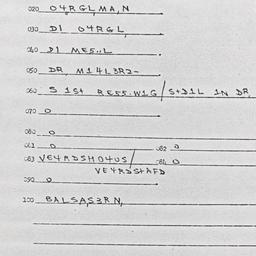 020 O4RGL,MA,N
030 DI O4RGL,
040 DI ME5.,L
050 DR, M14L3R2-
060 S 1St RE55.W1G/S+J1L IN DR,
070 O
080 O
081 O 082 O
083 VE4RDSHO4US/ 084 O
VE4RDStAFD
090 O
100 BALSAS3RN,